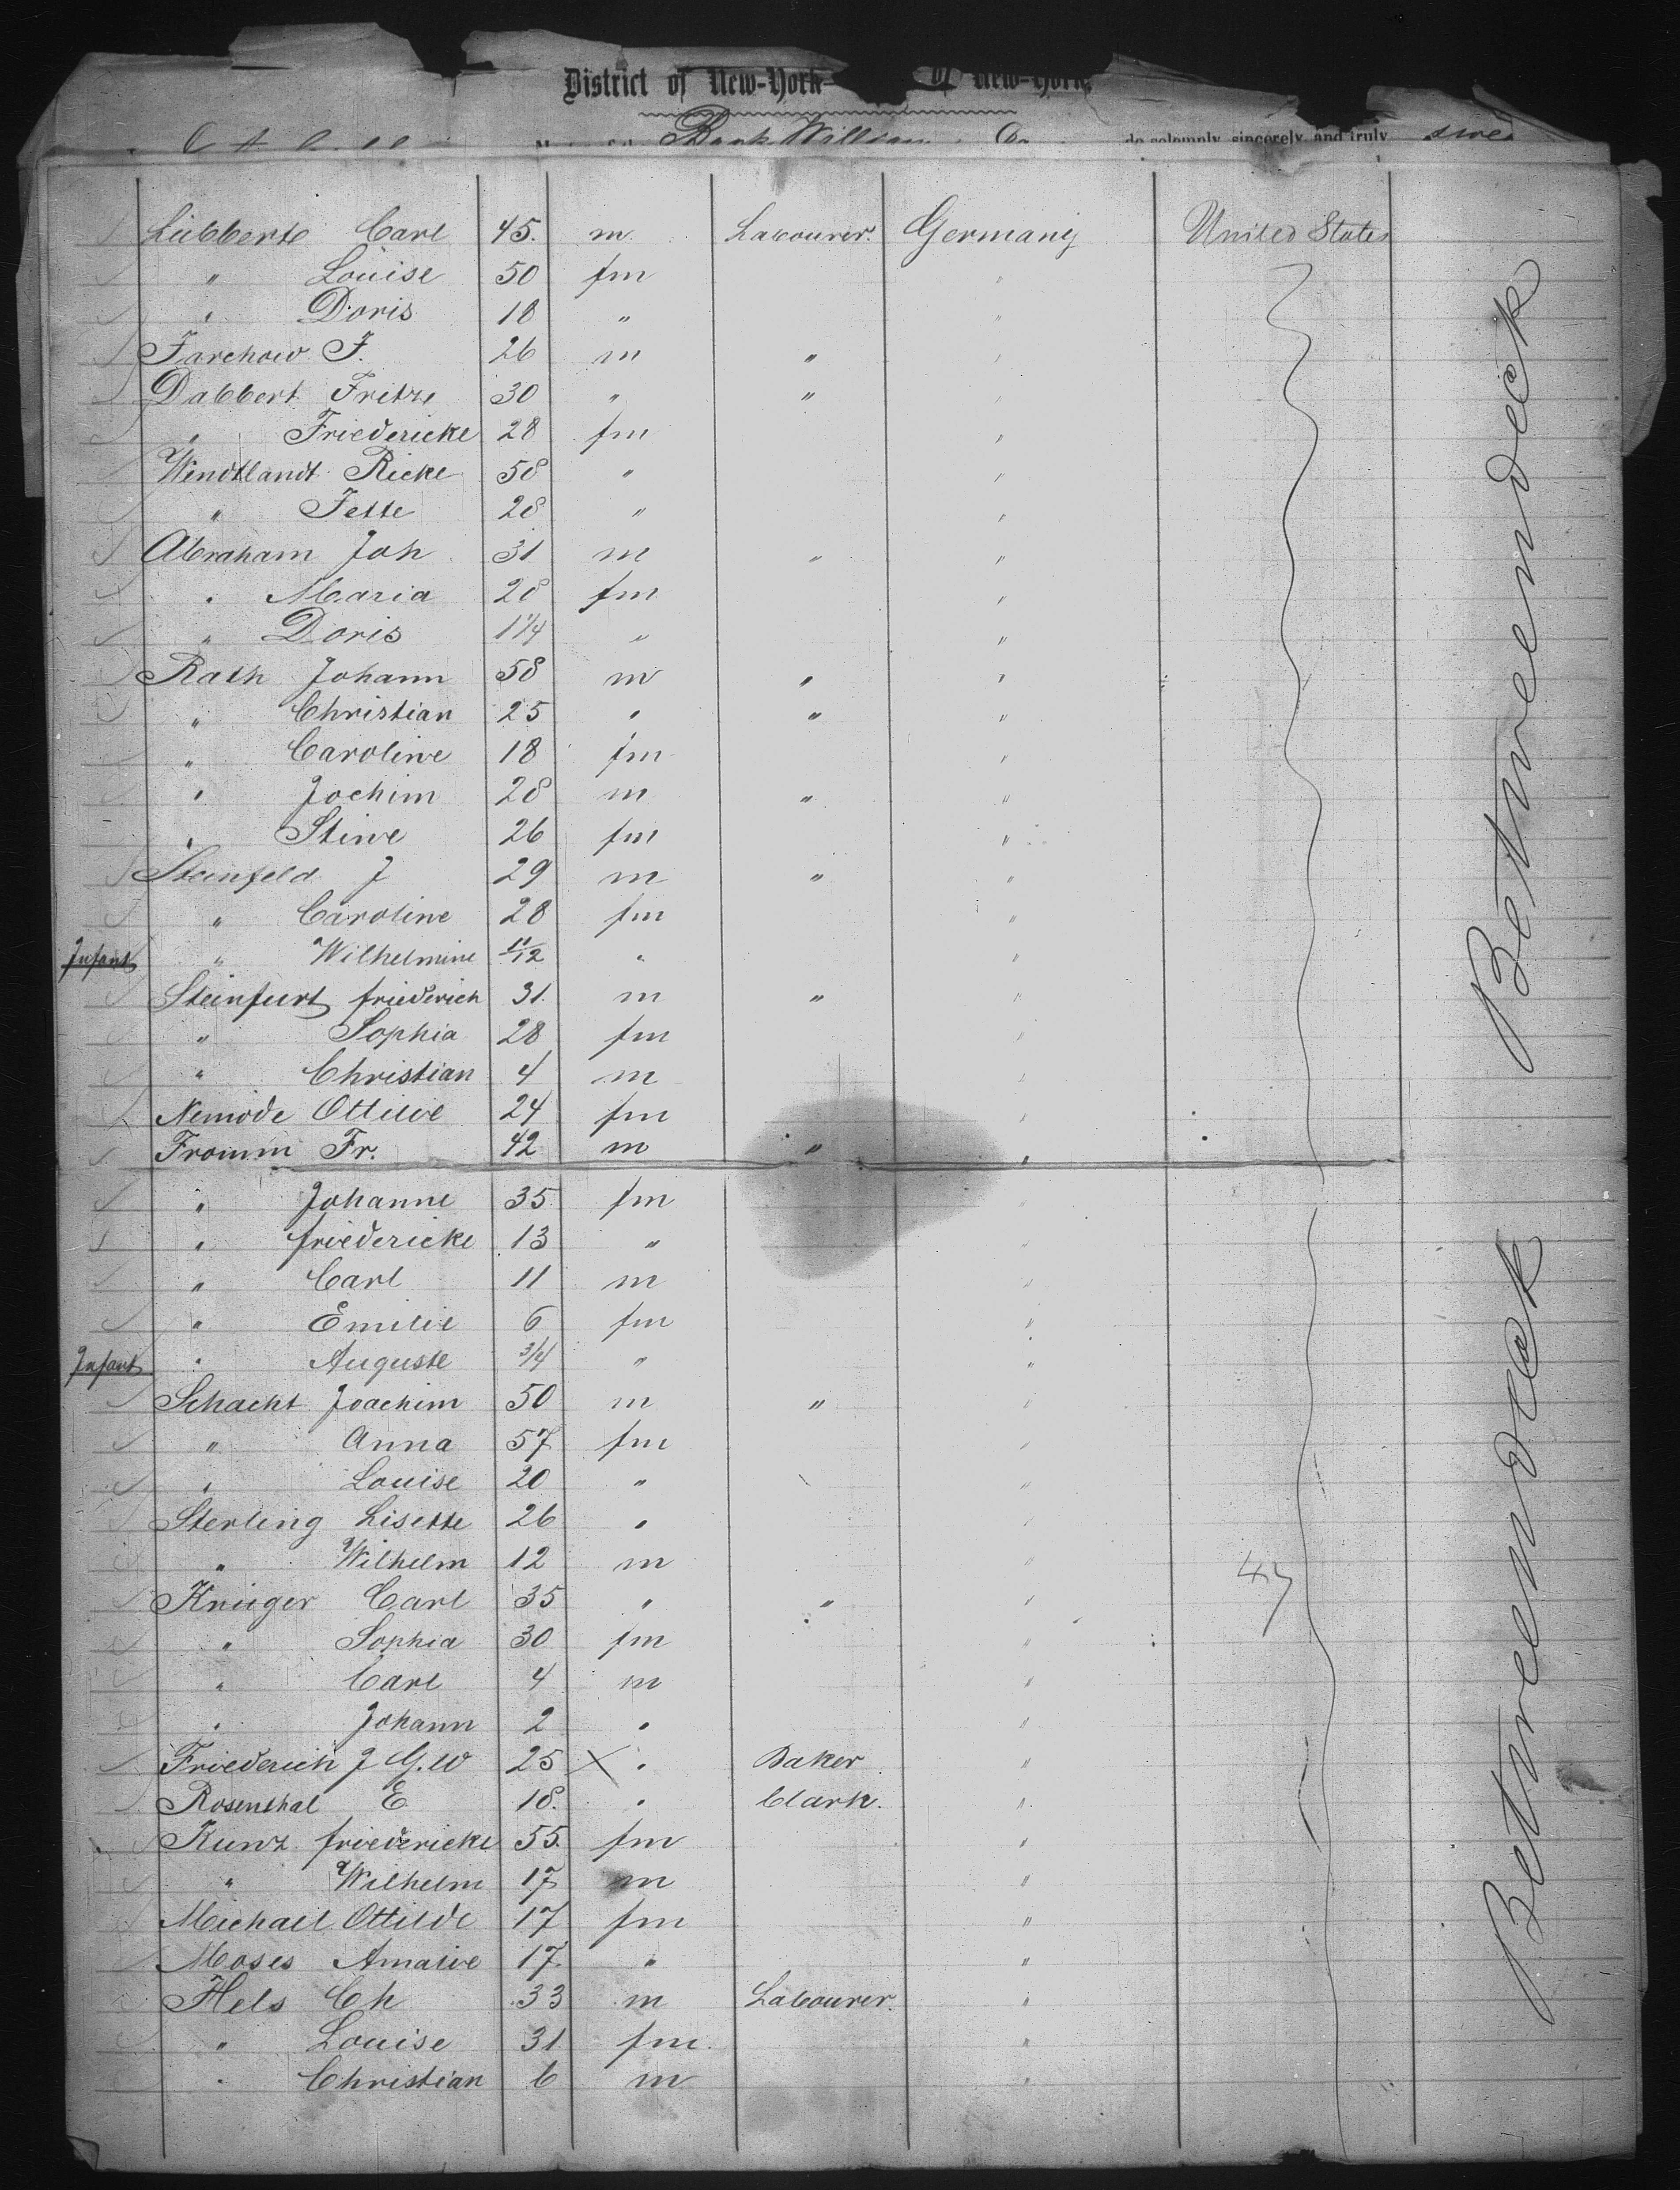 District of New-York of New-York
Bark William do solemnly, sincerely, and truly
Lübberte Carl 45. m. Labourer. Germany United States
" Louise 50 fm "
" Doris 18 " "
Jarchow J. 26 m " "
Dabbert Fritze 30 " " "
" Friedericke 28 fm "
Windtlandt Ricke 58 " "
" Jette 28 " "
Abraham Joh 31 m " "
" Maria 28 fm "
" Doris 1 1/4 " "
Rath Johann 58 m " "
" Christian 25 " " "
" Caroline 18 fm "
" Jochim 28 m " "
" Stine 26 fm "
Steinfeld J 29 m " "
" Caroline 28 fm "
Infant " Wilhelmine 11/12 " "
Steinfurt friederich 31. m " "
" Sophia 28 fm "
" Christian 4 m "
Nemode Ottilie 24 fm "
Fromm Fr. 42 m " "
" Johanne 35 fm "
" friedericke 13 " "
" Carl 11 m "
" Emilie 6 fm "
Infant " Auguste 3/4 " "
Schacht Joachim 50 m " "
" Anna 57 fm "
" Louise 20 " "
Sterling Lisette 26 " "
" Wilhelm 12 m "
Krüger Carl 35 " " "
" Sophia 30 fm "
" Carl 4 m "
" Johann 2 " "
Friederich J G. W 25 X " Baker "
Rosenthal E 18. " Clark. "
Kunz friedericke 55. fm "
" Wilhelm 17 m "
Michael Ottilde 17 fm "
Moses Amalie 17. " "
Hels Ch 33 m Labourer. "
" Louise 31 fm. "
" Christian 6 m "
47
Betweendeck
Betweendeck